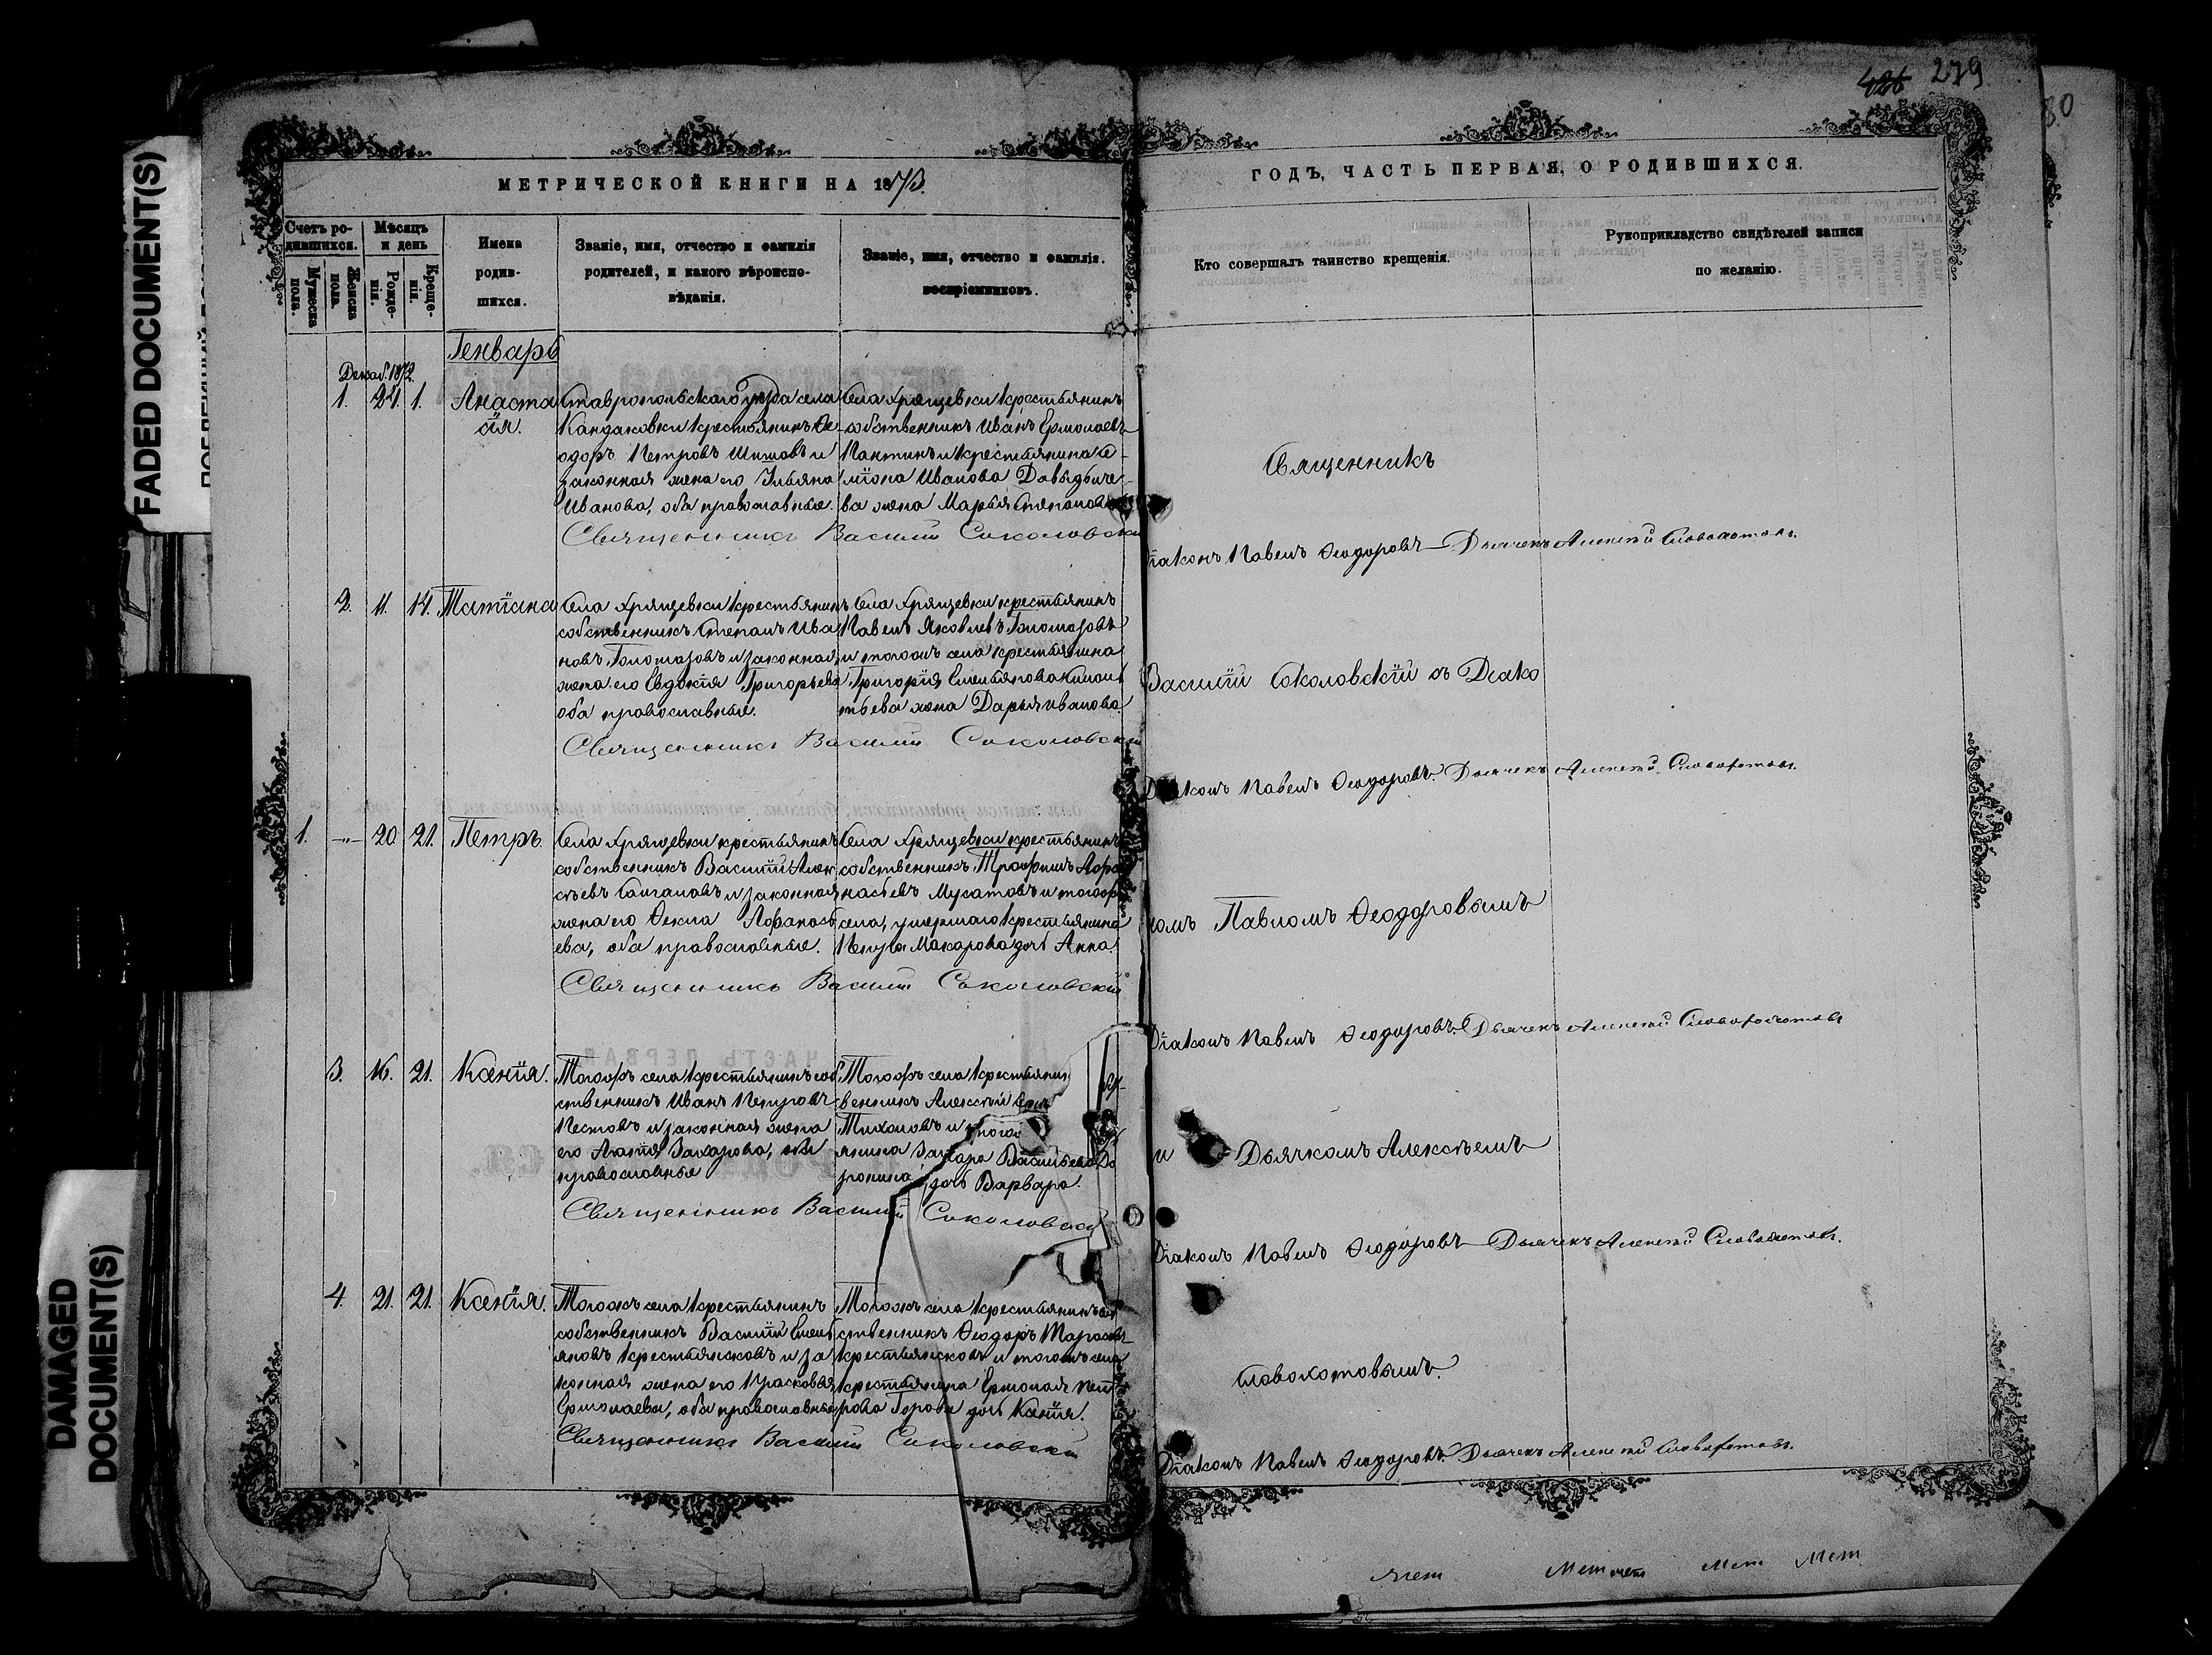 FADED DOCUMENT(S)
DAMAGED
DOCUMENT(S)
426 279
80
МЕТРИЧЕСКОЙ КНИГИ НА 1873.
ГОДЪ, ЧАСТЬ ПЕРВАЯ, О РОДИВШИХСЯ.
Счетъ ро-
дившихся.
Мужеска
пола.
Женска
пола.
Мѣсяцъ
и день
Рожде-
нія.
Креще-
нія.
Имена
родив-
шихся.
Званіе, имя, отчество и фамилія
родителей, и какого вѣроиспо-
вѣданія.
Званіе, имя, отчество и фамилія.
воспріемниковъ.
Кто совершалъ таинство крещенія.
Рукоприкладство свидѣтелей записи
по желанію.
Генварь
Декаб. 1872.
1. 24. 1.
Анаста
сія.
Ставропольскаго уѣзда села
Кандаковки крестьянинъ Ѳе-
одоръ Петровъ Шитовъ и
законная жена его Ульяна
Иванова, оба православные.
Села Хрящевки крестьянинъ
собственникъ Иванъ Ермолаевъ
Пантинъ и крестьянина Се-
міона Иванова Давыдыче-
ва жена Марья Степанова
Священникъ Василій Соколовскій
Священникъ
Діаконъ Павелъ Ѳеодоровъ Дьячекъ Алексѣй Словохотовъ.
2. 11. 14.
Татіана
Села Хрящевки крестьянинъ
собственникъ Степанъ Ива
новъ Голошаповъ и законная
жена его Евдокія Григорьева
оба православные.
Села Хрящевки крестьянинъ
Павелъ Яковлевъ
и тогожъ села крестьянина
Григорія Емельянова
жена Дарья Иванова
Священникъ Василій Соколовскій
Василій Соколовскій съ Діако
Діаконъ Павелъ Ѳеодоровъ. Дьячекъ Алексѣй Словохотовъ.
1. -„- 20 21.
Петръ.
Села Хрящевки крестьянинъ
собственникъ Василій Алек
сѣевъ и законная
жена его Ѳекла Афанась
ева, оба православные.
Села Хрящевки крестьянинъ
собственникъ Трофимъ Афа
насьевъ Мусатовъ и тогожъ
села, умершаго крестьянина
Петра Макарова дочь Анна.
Священникъ Василій Соколовскій
номъ Павломъ Ѳеодоровымъ
Діаконъ Павелъ Ѳеодоровъ. Дьячекъ Алексѣй Словохотовъ
3. 16. 21.
Ксенія.
Тогожъ села крестьянинъ соб
ственникъ Иванъ Петровъ
Пестовъ и законная жена
его Агапія Захарова, оба
православные
Тогожъ села крестьянин
венникъ Алексѣй
Тихоновъ и тогож
янина Захара Васильева До
ронина дочь Варвара.
Священникъ Василій Соколовскій
и Дьячкомъ Алексѣемъ
Діаконъ Павелъ Ѳеодоровъ Дьячекъ Алексѣй Словохотовъ.
4. 21. 21.
Ксенія.
Тогожъ села крестьянинъ
собственникъ Василій Емель
яновъ Крестьянсковъ и за
конная жена его Прасковья
Ермолаева, оба православные
Тогожъ села крестьянинъ соб
ственникъ Ѳеодоръ Тарасовъ
Крестьянсковъ и тогожъ села
крестьянина Ермолая Пет
рова дочь Ксенія.
Священникъ Василій Соколовскій
Словохотовымъ.
Діаконъ Павелъ Ѳеодоровъ. Дьячекъ Алексѣй Словохотовъ.
Мет Мет Мет